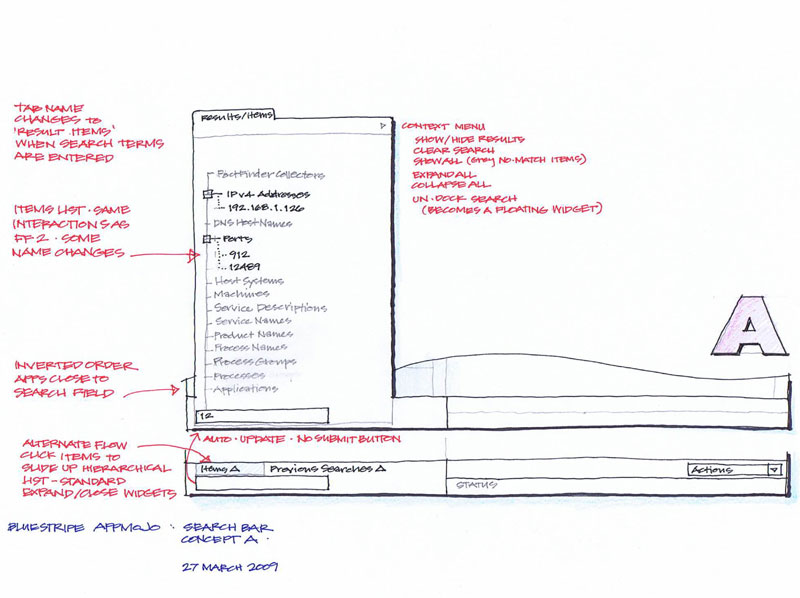 TAB NAME
CHANGES TO
'RESULT ITEMS'
WHEN SEARCH TERMS
ARE ENTERED
ITEMS LIST · SAME
INTERACTIONS AS
FF 2 · SOME
NAME CHANGES
INVERTED ORDER
APPS CLOSE TO
SEARCH FIELD
Results/Items
FactFinder Collectors
IPv4 Addresses
192.168.1.126
DNS Host Names
Ports
912
12489
Host Systems
Machines
Service Descriptions
Service Names
Product Names
Process Names
Process Groups
Processes
Applications
12
CONTEXT MENU
SHOW/HIDE RESULTS
CLEAR SEARCH
SHOW ALL (Grey NO-MATCH ITEMS)
EXPAND ALL
COLLAPSE ALL
UN-DOCK SEARCH
(BECOMES A FLOATING WIDGET)
A
AUTO-UPDATE - NO SUBMIT BUTTON
ALTERNATE FLOW
CLICK ITEMS TO
SLIDE UP HIERARCHICAL
LIST - STANDARD
EXPAND/CLOSE WIDGETS
Items Δ Previous Searches Δ
Actions
STATUS
BLUESTRIPE APPMOJO : SEARCH BAR
CONCEPT A.
27 MARCH 2009